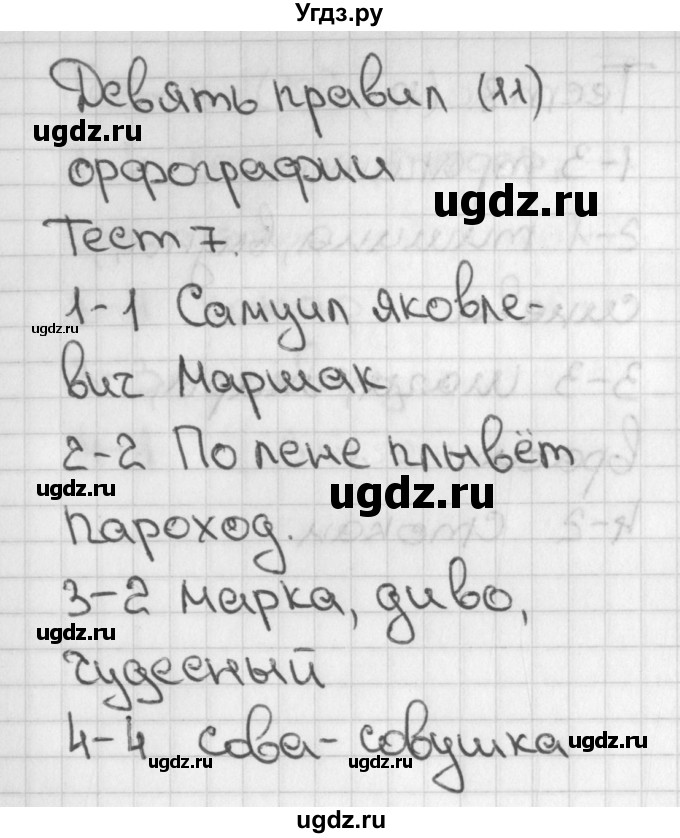 Угдз.ру
Девять правил (11)
ugdz.ru
орфографии
ugdz.ru
Тест 7.
1-1 Самуил яковле-
ugdz.ru
вич Маршак
2-2 По лене плывёт
ugdz.ru
ugdz.ru
пароход.
3-2 марка, диво,
ugdz.ru
чудесный
4-4 сова-совушка
ugdz.ru
ugdz.ru
ugdz.ru
ugdz.ru